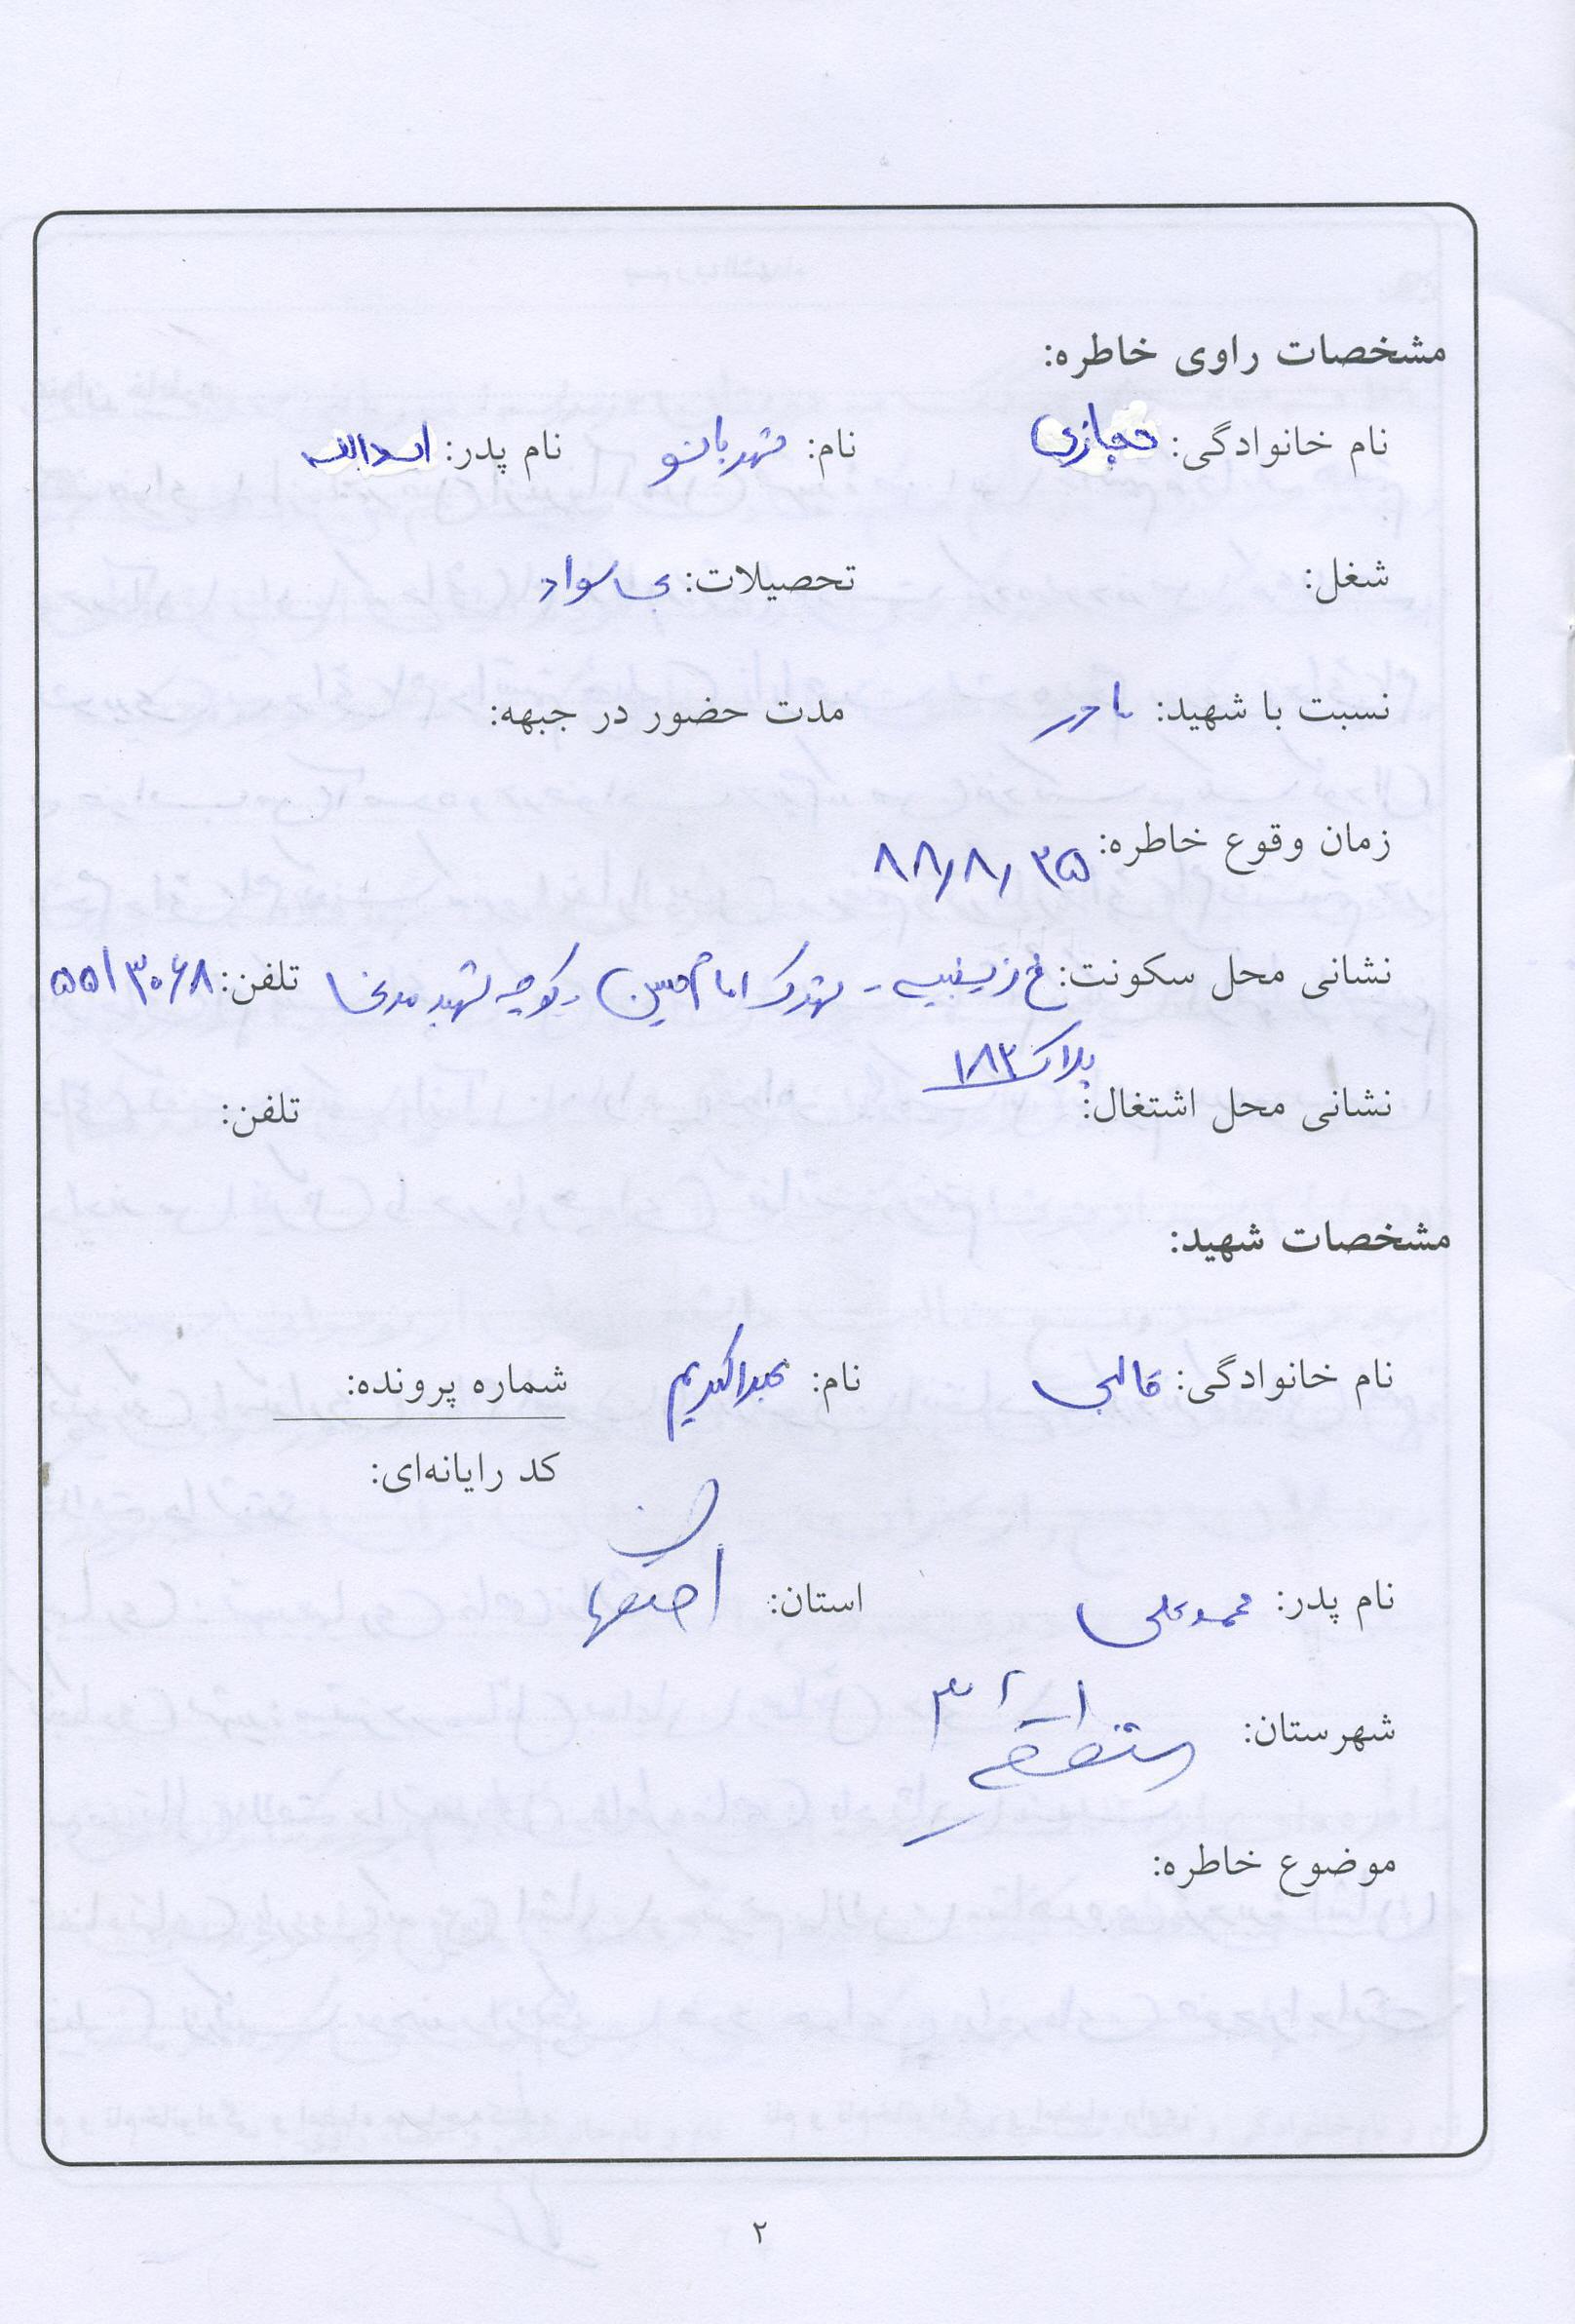 مشخصات راوی خاطره:
نام خانوادگی: حجازی نام: شهربانو نام پدر: اسدالله
شغل: تحصیلات: بی سواد
نسبت با شهید: مادر مدت حضور در جبهه:
زمان وقوع خاطره: ۸۸/۸/۲۵
نشانی محل سکونت: خ زینبیه - شهرک امام حسین - کوچه شهید تلفن: ۵۵۱۳۰۶۸
پلاک ۱۸۳
نشانی محل اشتغال: تلفن:
مشخصات شهید:
نام خانوادگی: قالبی نام: عبدالکریم شماره پرونده:
کد رایانه‌ای:
نام پدر: محمدعلی استان: اصفهان
شهرستان: منطقه ۳
موضوع خاطره:
۲